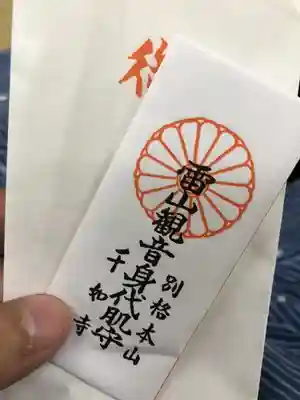 雷山観音身代肌守
別格本山
千如寺